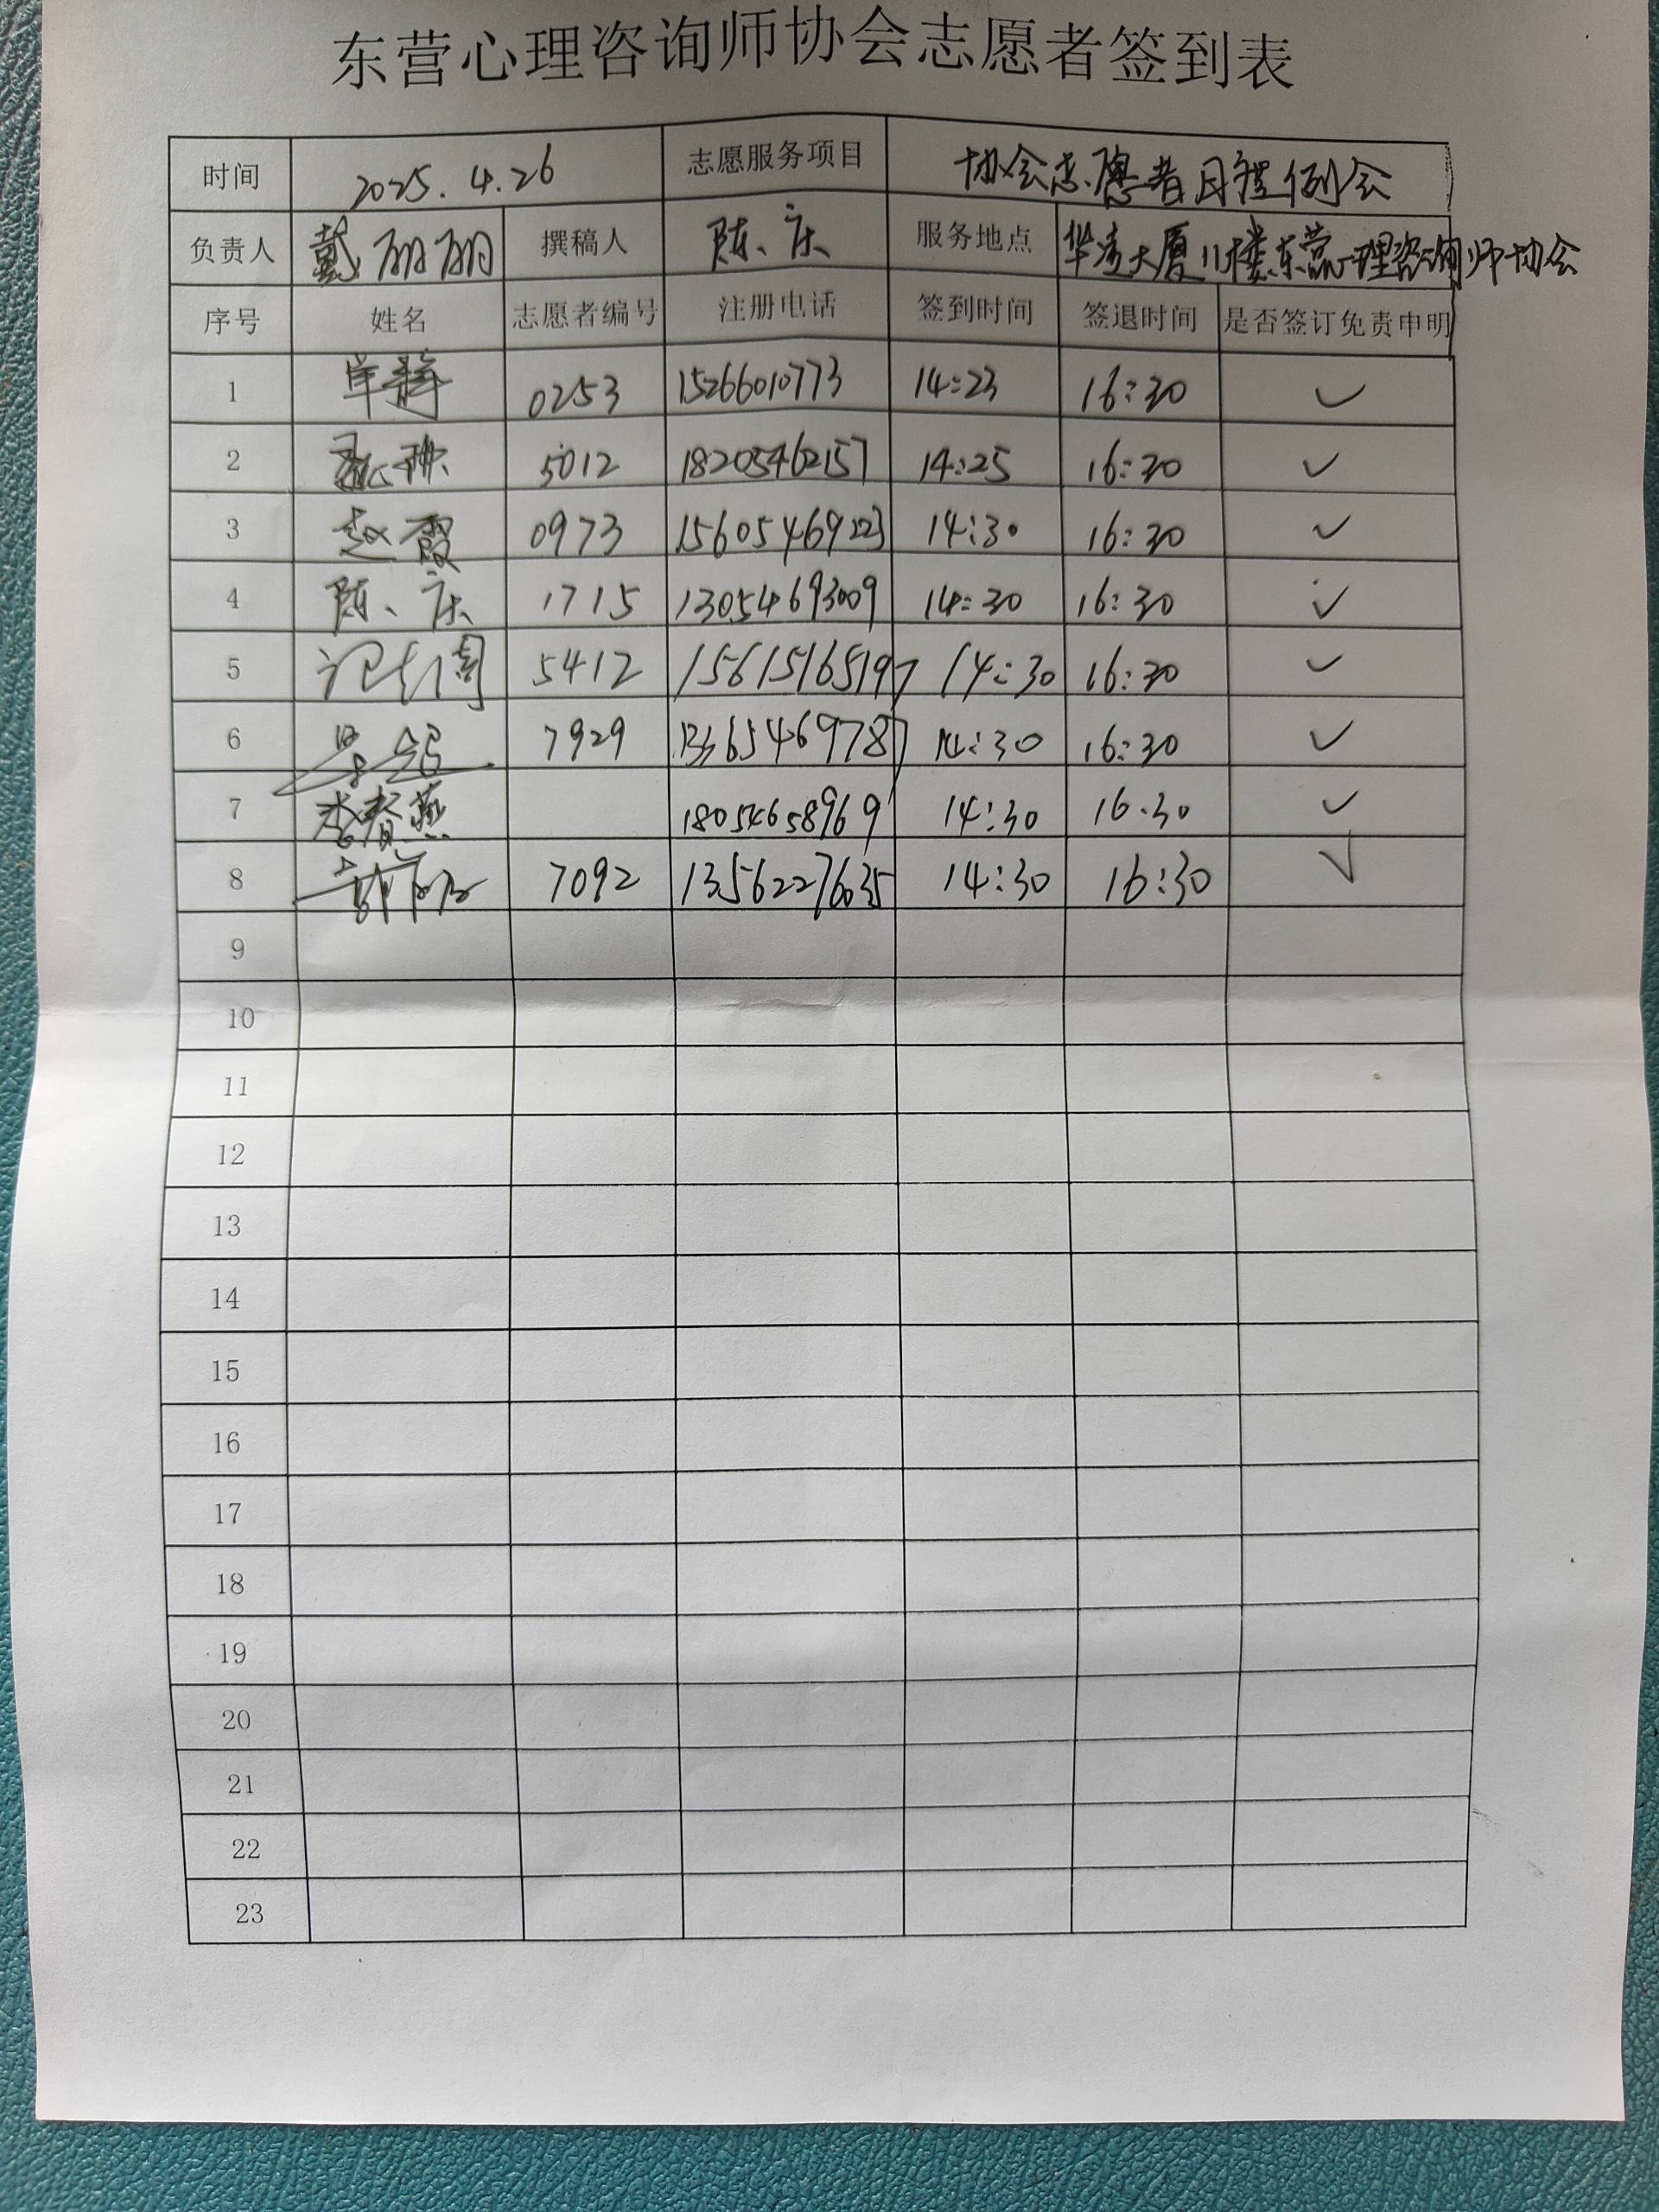 东营心理咨询师协会志愿者签到表
时间 2025.4.26 志愿服务项目 协会志愿者月程例会
负责人 戴丽丽 撰稿人 陈庆 服务地点 华凌大厦11楼东营心理咨询师协会
序号 姓名 志愿者编号 注册电话 签到时间 签退时间 是否签订免责申明
1 单静 0253 15266010773 14:23 16:30 ✓
2 5012 18205462157 14:25 16:30 ✓
3 赵霞 0973 15605469223 14:30 16:30 ✓
4 陈庆 1715 13054693009 14:30 16:30 ✓
5 5412 15615165197 14:30 16:30 ✓
6 7929 14:30 16:30 ✓
7 李春燕 18054658969 14:30 16:30 ✓
8 7092 13562276035 14:30 16:30 ✓
9
10
11
12
13
14
15
16
17
18
19
20
21
22
23